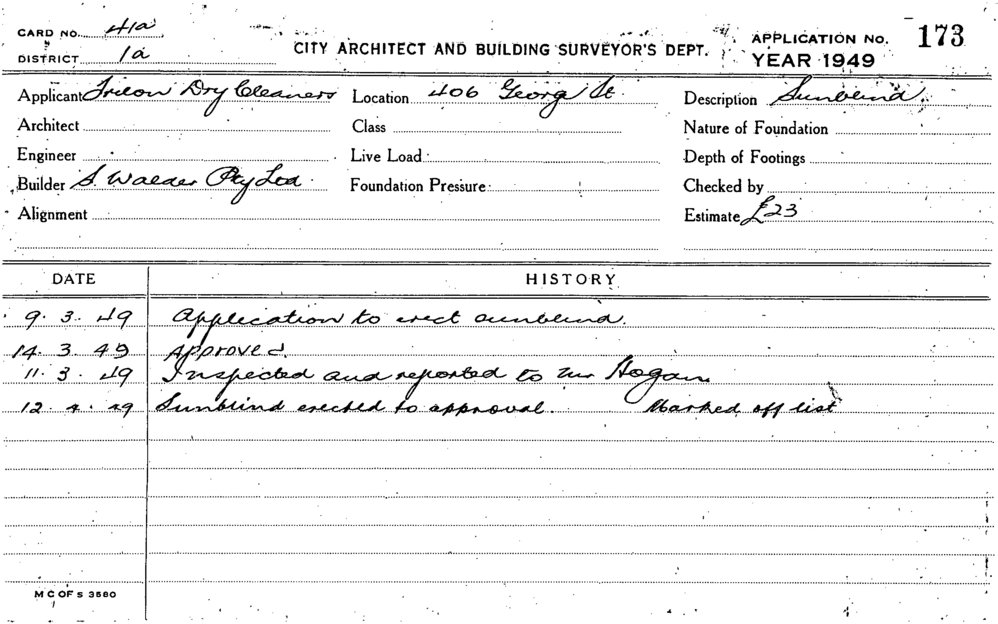 CARD NO. 41a
DISTRICT 1a
CITY ARCHITECT AND BUILDING SURVEYOR'S DEPT.
APPLICATION No. 173
YEAR 1949
Applicant Tricon Dry Cleaners Location 406 George St. Description Sunblind.
Architect Class Nature of Foundation
Engineer Live Load Depth of Footings
Builder S. Walder Pty Ltd. Foundation Pressure Checked by
Alignment Estimate £23
DATE HISTORY
9. 3. 49 Application to erect sunblind.
14. 3. 49 Approved.
11. 3. 49 Inspected and reported to Mr Hogan.
12. 4. 49 Sunblind erected to approval. Marked off list
M C OF S 3580